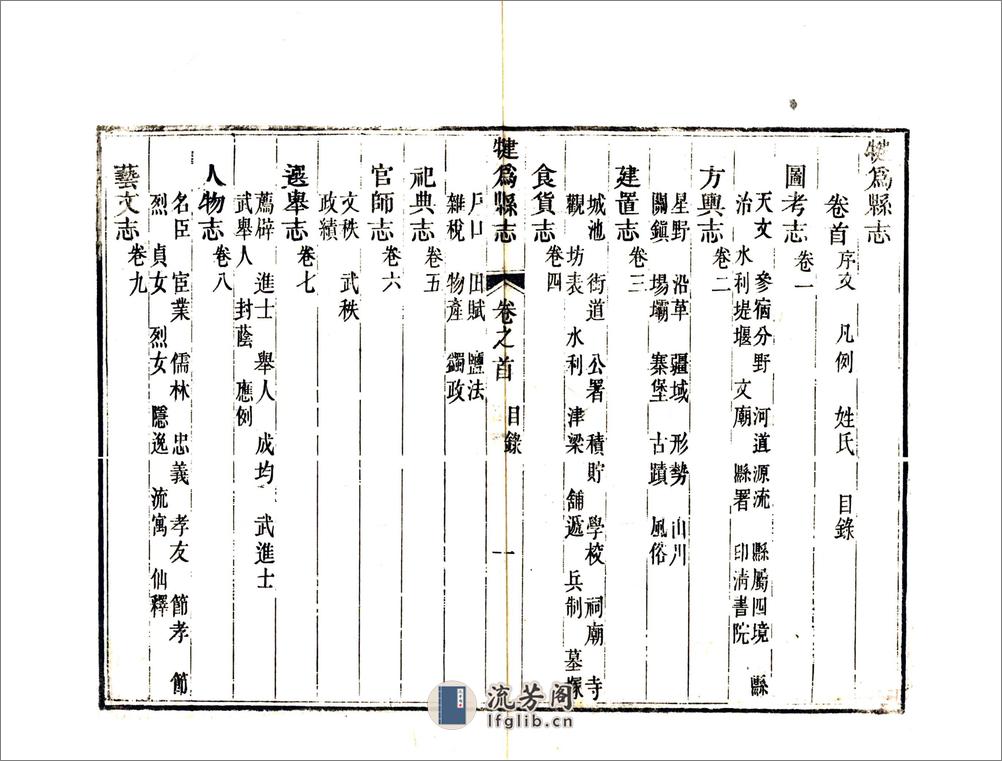 犍爲縣志
卷首 序文 凡例 姓氏 目錄
圖考志 卷一
天文 參宿分野 河道源流 縣屬四境 縣
治 水利堤堰 文廟 縣署 印清書院
方輿志 卷二
星野 沿革 疆域 形勢 山川
關鎮 場壩 寨堡 古蹟 風俗
建置志 卷三
城池 街道 公署 積貯 學校 祠廟 寺
觀 坊表 水利 津梁 舖遞 兵制 墓塚
食貨志 卷四
犍爲縣志 卷之首 目錄 一
戶口 田賦 鹽法
雜稅 物產 蠲政
祀典志 卷五
官師志 卷六
文秩 武秩
政績
選舉志 卷七
薦辟 進士 舉人 成均 武進士
武舉人 封蔭 應例
人物志 卷八
名臣 宦業 儒林 忠義 孝友 節孝 節
烈 貞女 烈女 隱逸 流寓 仙釋
藝文志 卷九
流芳阁
lfglib.cn